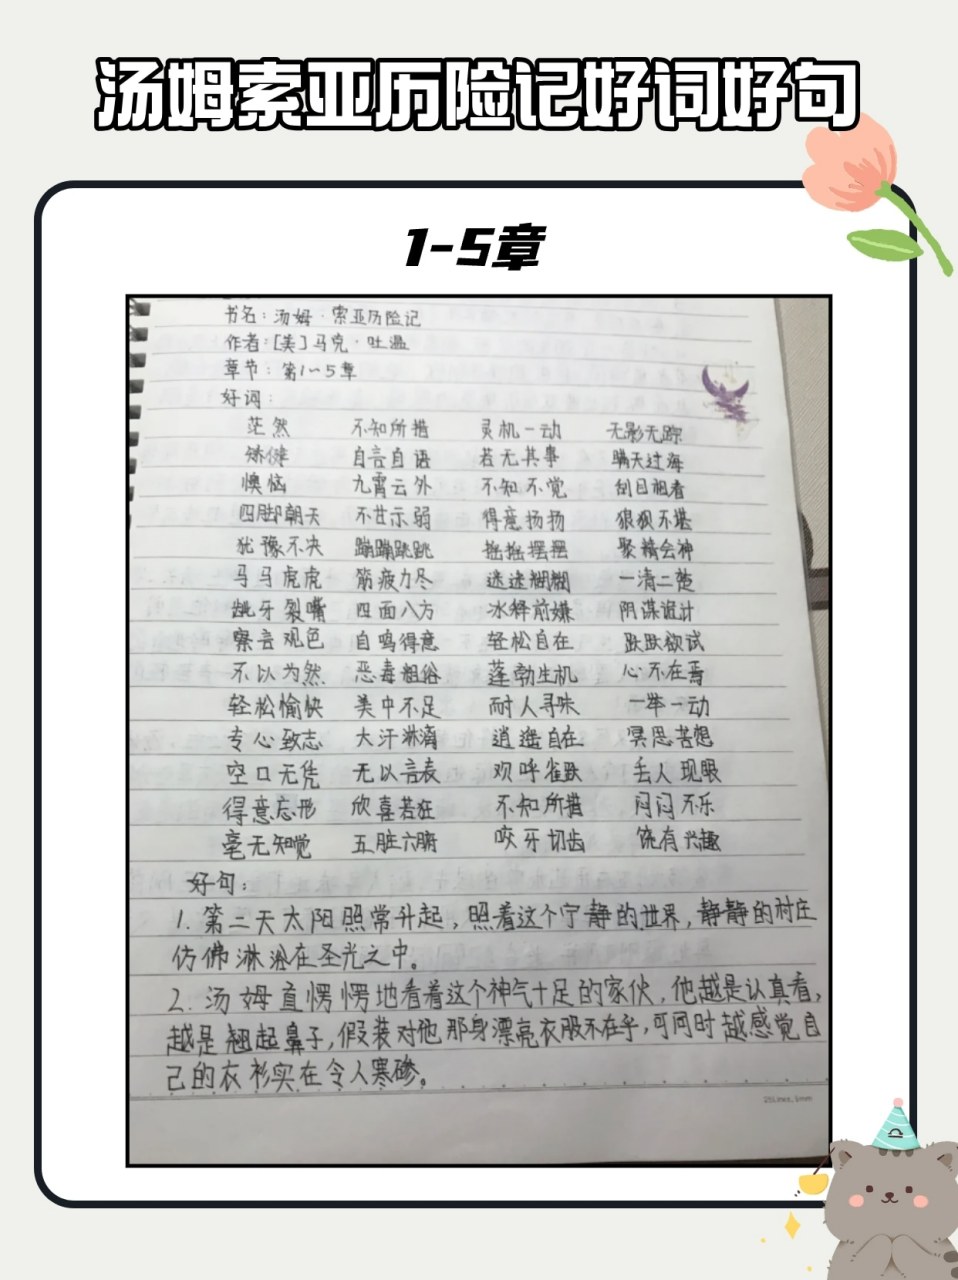 汤姆索亚历险记好词好句
1-5章
书名：汤姆·索亚历险记
作者：[美]马克·吐温
章节：第1~5章
好词：
茫然 不知所措 灵机一动 无影无踪
矫健 自言自语 若无其事 瞒天过海
懊恼 九霄云外 不知不觉 刮目相看
四脚朝天 不甘示弱 得意扬扬 狼狈不堪
犹豫不决 蹦蹦跳跳 摇摇摆摆 聚精会神
马马虎虎 筋疲力尽 迷迷糊糊 一清二楚
龇牙裂嘴 四面八方 冰释前嫌 阴谋诡计
察言观色 自鸣得意 轻松自在 跃跃欲试
不以为然 恶毒粗俗 蓬勃生机 心不在焉
轻松愉快 美中不足 耐人寻味 一举一动
专心致志 大汗淋漓 逍遥自在 冥思苦想
空口无凭 无以言表 欢呼雀跃 丢人现眼
得意忘形 欣喜若狂 不知所措 闷闷不乐
毫无知觉 五脏六腑 咬牙切齿 饶有兴趣
好句：
1. 第二天太阳照常升起，照着这个宁静的世界，静静的村庄
仿佛淋浴在圣光之中。
2. 汤姆直愣愣地看着这个神气十足的家伙，他越是认真看，
越是翘起鼻子，假装对他那身漂亮衣服不在乎，可同时越感觉自
己的衣衫实在令人寒碜。